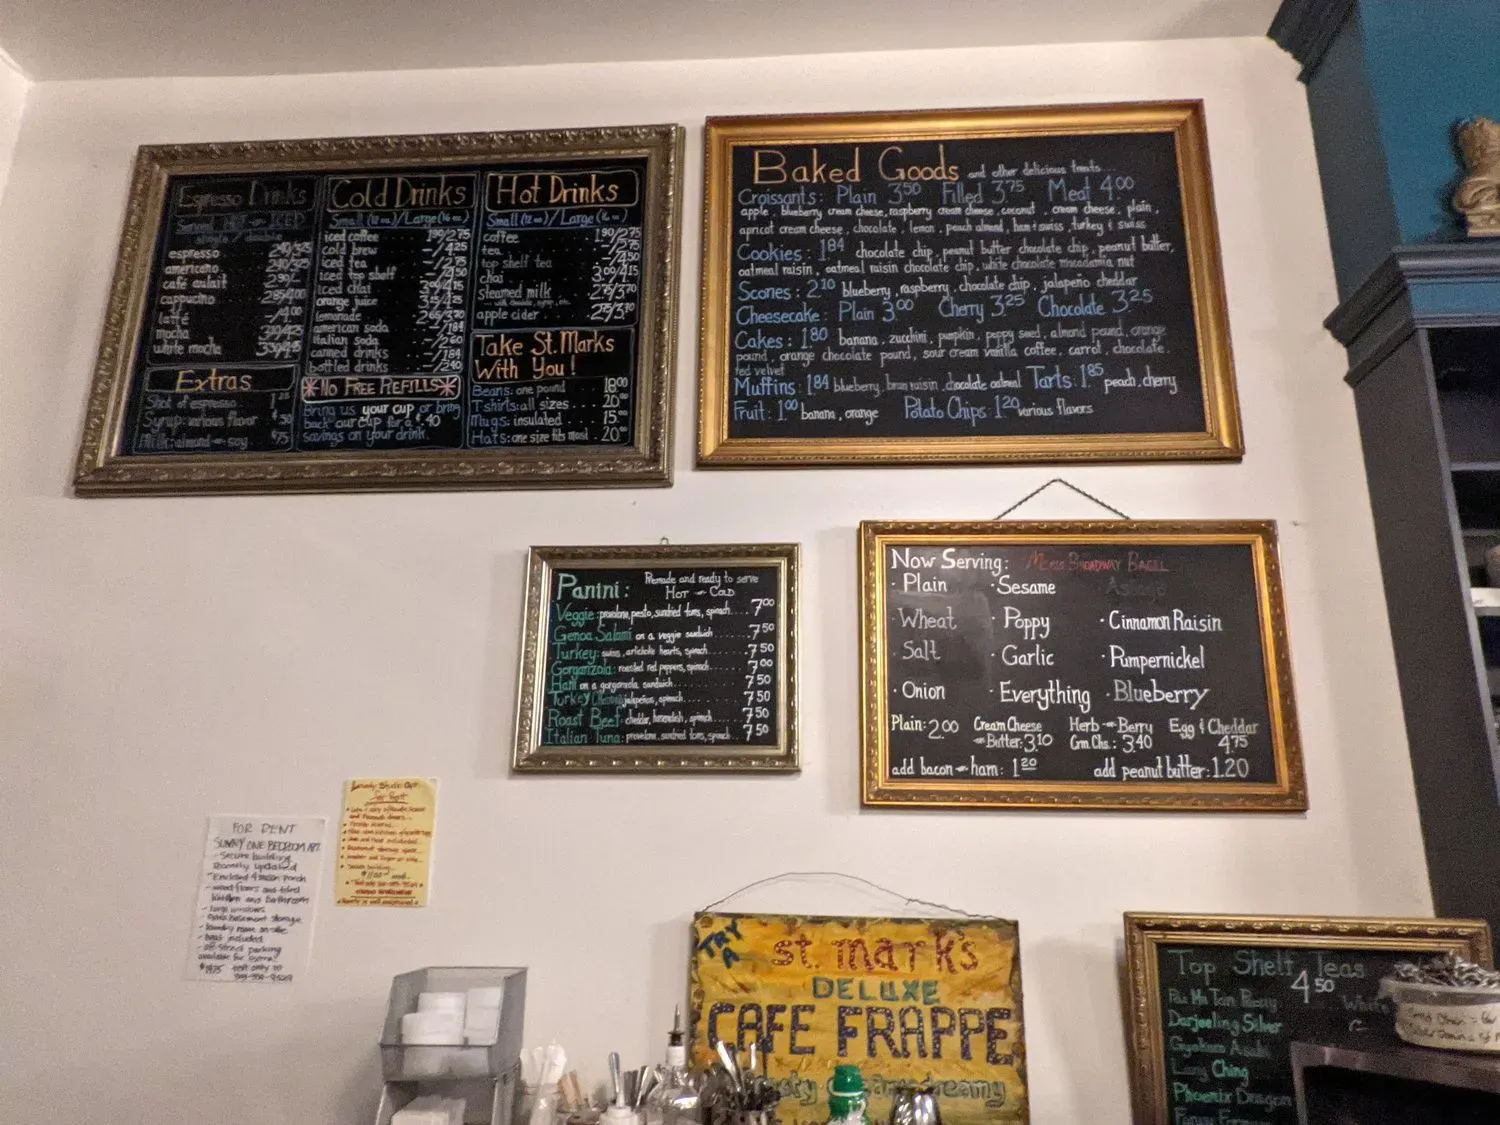 Espresso Drinks
Served HOT or ICED
single / double
espresso
americano
café aulait
cappucino 2.85/4.00
latté -/4.00
mocha
white mocha
Extras
Shot of espresso
Syrup: various flavor .50
Milk: almond or soy .75
Cold Drinks
Small (12 oz.) / Large (16 oz.)
iced coffee 1.90/2.75
cold brew -/4.25
iced tea -/2.75
iced top shelf -/4.50
iced chai 3.00/4.15
orange juice
lemonade 2.65/3.70
american soda -/1.84
italian soda -/2.60
canned drinks -/1.84
bottled drinks -/2.40
*NO FREE REFILLS*
Bring us your cup or bring
back our cup for a $.40
savings on your drink.
Hot Drinks
Small (12 oz) / Large (16 oz)
coffee 1.90/2.75
tea -/2.75
top shelf tea -/4.50
chai 3.00/4.15
steamed milk 2.75/3.70
apple cider
Take St. Marks
With You!
Beans: one pound 18.00
T-shirts: all sizes 20.00
Mugs: insulated 15.00
Hats: one size fits most 20.00
Baked Goods and other delicious treats...
Croissants: Plain 3.50 Filled 3.75 Meat 4.00
apple, blueberry cream cheese, raspberry cream cheese, coconut, cream cheese, plain,
apricot cream cheese, chocolate, lemon, peach almond, ham & swiss, turkey & swiss
Cookies: 1.84 chocolate chip, peanut butter chocolate chip, peanut butter,
oatmeal raisin, oatmeal raisin chocolate chip, white chocolate macadamia nut
Scones: 2.10 blueberry, raspberry, chocolate chip, jalapeno cheddar
Cheesecake: Plain 3.00 Cherry 3.25 Chocolate 3.25
Cakes: 1.80 banana, zucchini, pumpkin, poppy seed, almond pound, orange
pound, orange chocolate pound, sour cream vanilla coffee, carrot, chocolate,
red velvet
Muffins: 1.84 blueberry, bran raisin, chocolate oatmeal Tarts: 1.85 peach, cherry
Fruit: 1.00 banana, orange Potato Chips: 1.20 various flavors
Panini: Premade and ready to serve
HOT or COLD
Veggie: provolone, pesto, sundried toms, spinach 7.00
Genoa Salami on a veggie sandwich 7.50
Turkey: swiss, artichoke hearts, spinach 7.50
Gorgonzola: roasted red peppers, spinach 7.00
Ham on a gorgonzola sandwich 7.50
Turkey jalapeños, spinach 7.50
Roast Beef: cheddar, horseradish, spinach 7.50
Italian Tuna: provolone, sundried toms, spinach 7.50
Now Serving: BROADWAY BAGEL
· Plain · Sesame Asiago
· Wheat · Poppy · Cinnamon Raisin
· Salt · Garlic · Pumpernickel
· Onion · Everything · Blueberry
Plain: 2.00 Cream Cheese or Butter: 3.10 Herb or Berry Crm. Chs.: 3.40 Egg & Cheddar 4.75
add bacon or ham: 1.20 add peanut butter: 1.20
FOR RENT
SUNNY ONE BEDROOM APT.
- Secure building
recently updated
- wood floors and tiled
kitchen and bathroom
- large windows
- extra basement storage
- laundry room on-site
- heat included
- off street parking
available for
text only to
Studio Apt
For Rent
TRY
A
st. mark's
DELUXE
CAFE FRAPPE
creamy
Top Shelf Teas
4.50
Darjeeling Silver
Lung Ching
Phoenix Dragon